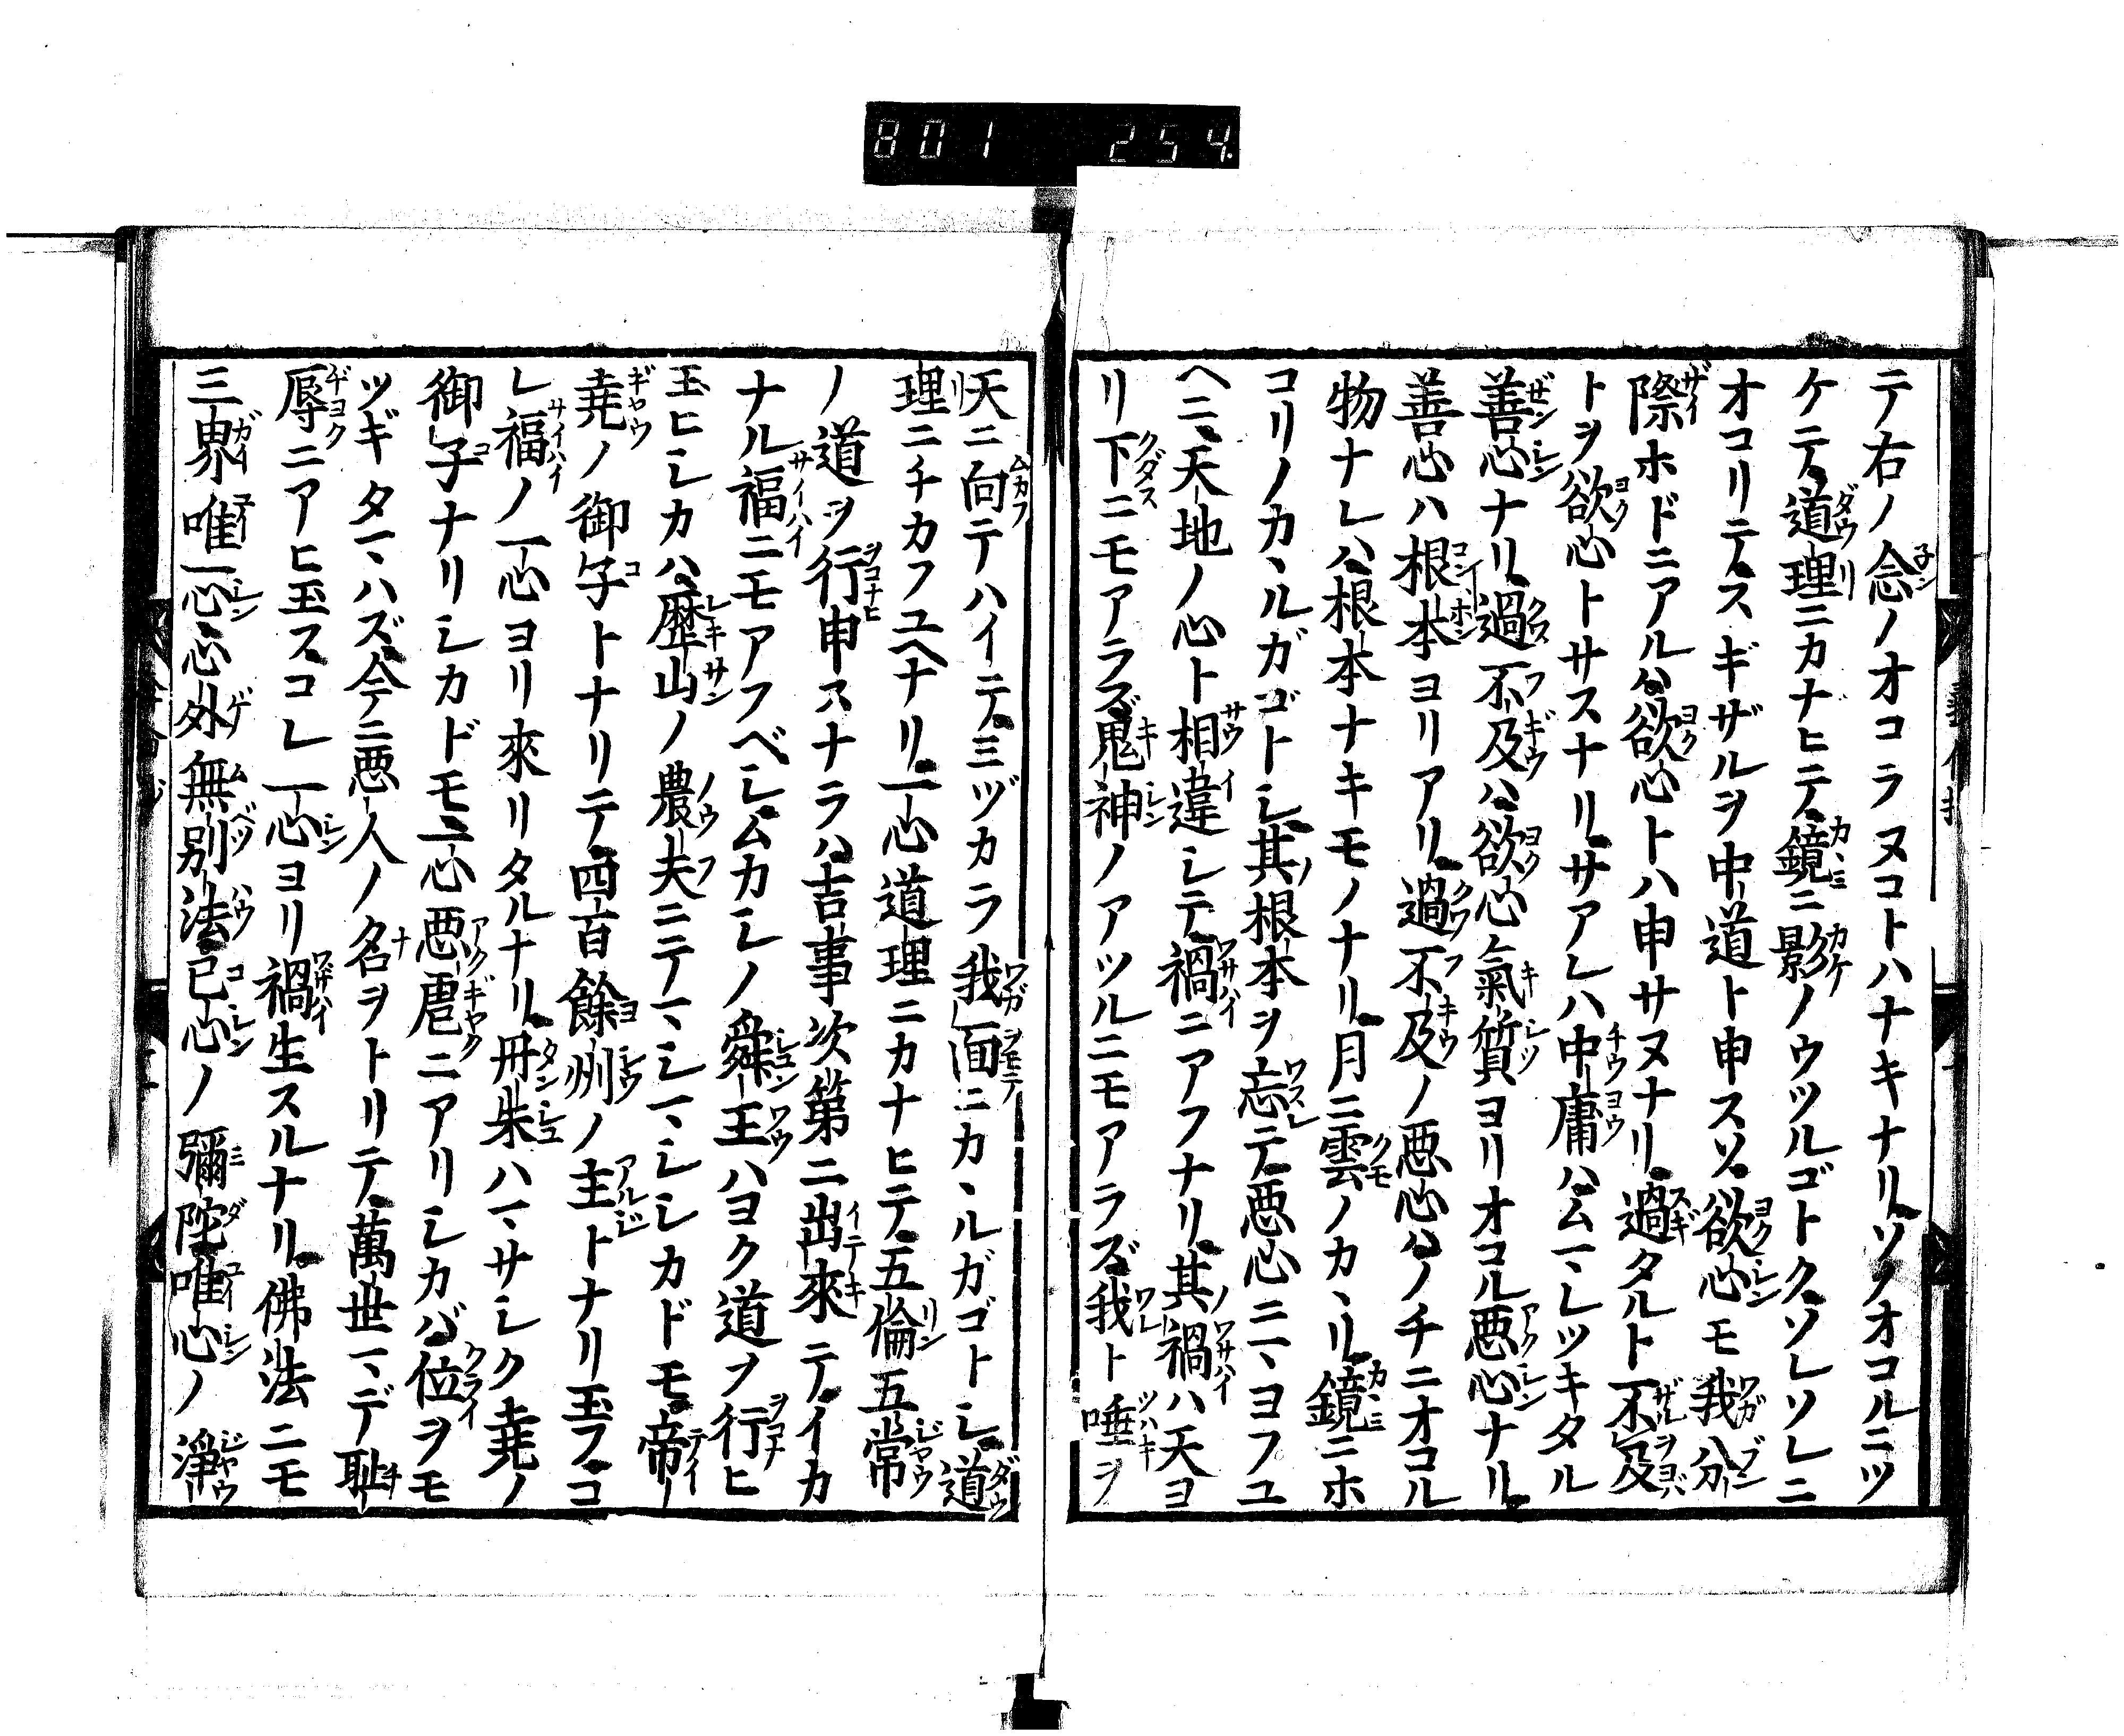 801 254.
テ右ノ念ノオコラヌコトハナキナリ。ソノオコルニツ
ケテ。道理ニカナヒテ。鏡ニ影ノウツルゴトク。ソレソレニ
オコリテ。スギザルヲ中道ト申スソ。欲心モ我八分
際ホドニアルハ。欲心トハ申サヌナリ。過タルト不及
トヲ欲心トサスナリ。サアレハ中庸ハムマレツキタル
善心ナリ。過不及ハ。欲心氣質ヨリオコル悪心ナリ。
善心ハ根本ヨリアリ。過不及ノ悪心ハ。ノチニオコル
物ナレハ。根本ナキモノナリ。月ニ雲ノカヽリ。鏡ニホ
コリノカヽルガゴトシ。其根本ヲ忘テ。悪心ニマヨフユ
ヘニ。天地ノ心ト相違シテ。禍ニアフナリ。其禍ハ天ヨ
リ下ニモアラズ。鬼神ノアツルニモアラズ。我ト唾ヲ
天ニ向テハイテ。ミヅカラ我面ニカヽルガゴトシ。道
理ニチカフユヘナリ。一心道理ニカナヒテ。五倫五常
ノ道ヲ行申スナラハ。吉事次第ニ出來テ。イカ
ナル福ニモアフベシ。ムカシノ舜王ハヨク道ヲ行ヒ
玉ヒシカハ。歴山ノ農夫ニテマシマシシカドモ。帝
堯ノ御子トナリテ。四百餘州ノ主トナリ玉フ。コ
レ福ノ一心ヨリ來リタルナリ。丹朱ハマサシク堯ノ
御子ナリシカドモ。一心悪虐ニアリシカバ。位ヲモ
ツギタマハズ。今ニ悪人ノ名ヲトリテ。萬世マデ耻
辱ニアヒ玉ス。コレ一心ヨリ禍生スルナリ。佛法ニモ
三界唯一心。心外無別法。己心ノ彌陀唯心ノ淨